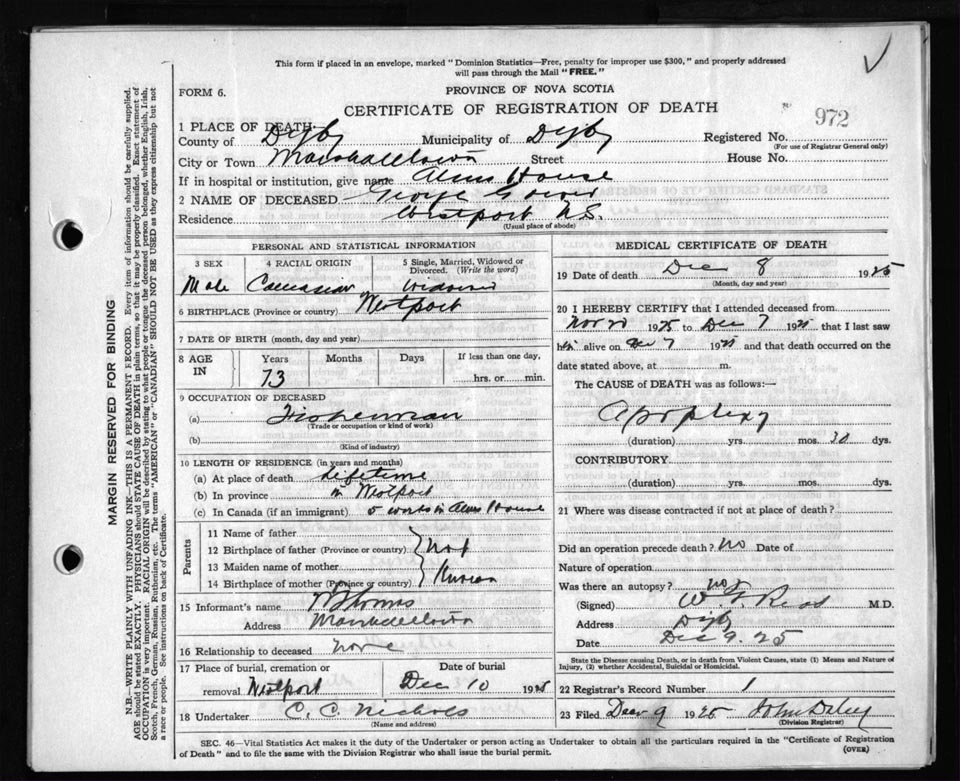 This form if placed in an envelope, marked "Dominion Statistics—Free, penalty for improper use $300," and properly addressed
will pass through the Mail "FREE."
FORM 6.
PROVINCE OF NOVA SCOTIA
CERTIFICATE OF REGISTRATION OF DEATH
972
1 PLACE OF DEATH
County of Digby Municipality of Digby Registered No.
(For use of Registrar General only)
City or Town Marshalltown Street House No.
If in hospital or institution, give name Alms House
2 NAME OF DECEASED George
Residence Westport N.S.
(Usual place of abode)
PERSONAL AND STATISTICAL INFORMATION
3 SEX 4 RACIAL ORIGIN 5 Single, Married, Widowed or
Divorced. (Write the word)
Male Caucasian Widowed
6 BIRTHPLACE (Province or country) Westport
7 DATE OF BIRTH (month, day and year)
8 AGE IN Years Months Days If less than one day,
73 hrs. or min.
9 OCCUPATION OF DECEASED
(a) Fisherman
(Trade or occupation or kind of work)
(b)
(Kind of industry)
10 LENGTH OF RESIDENCE (in years and months)
(a) At place of death lifetime
(b) In province in Westport
(c) In Canada (if an immigrant) 5 weeks in Alms House
Parents
11 Name of father
12 Birthplace of father (Province or country) Not
13 Maiden name of mother
14 Birthplace of mother (Province or country) Known
15 Informant's name
Address Marshalltown
16 Relationship to deceased none
17 Place of burial, cremation or Date of burial
removal Westport Dec 10 1925
18 Undertaker C. C. Nichols
(Name and address)
MEDICAL CERTIFICATE OF DEATH
19 Date of death Dec 8 1925
(Month, day and year)
20 I HEREBY CERTIFY that I attended deceased from
Nov 1925 to Dec 7 1925 that I last saw
him alive on Dec 7 1925 and that death occurred on the
date stated above, at m.
The CAUSE of DEATH was as follows:—
Apoplexy
(duration) yrs. mos. 30 dys.
CONTRIBUTORY.
(duration) yrs. mos. dys.
21 Where was disease contracted if not at place of death?
Did an operation precede death? no Date of
Nature of operation
Was there an autopsy? no
(Signed) M.D.
Address Digby
Date Dec 9. 25
State the Disease causing Death, or in death from Violent Causes, state (1) Means and Nature of
Injury, (2) whether Accidental, Suicidal or Homicidal.
22 Registrar's Record Number 1
23 Filed Dec 9 1925 John Daley
(Division Registrar)
SEC. 46—Vital Statistics Act makes it the duty of the Undertaker or person acting as Undertaker to obtain all the particulars required in the "Certificate of Registration
of Death" and to file the same with the Division Registrar who shall issue the burial permit. (OVER)
MARGIN RESERVED FOR BINDING
N.B.—WRITE PLAINLY WITH UNFADING INK—THIS IS A PERMANENT RECORD. Every item of information should be carefully supplied.
AGE should be stated EXACTLY. PHYSICIANS should STATE CAUSE OF DEATH in plain terms, so that it may be properly classified. Exact statement of
OCCUPATION is very important. RACIAL ORIGIN will be described by stating to what people or tongue the deceased person belonged, whether English, Irish,
Scotch, French, German, Russian, Ruthenian, etc. The terms "AMERICAN" or "CANADIAN" SHOULD NOT BE USED as they express citizenship but not
a race or people. See instructions on back of Certificate.